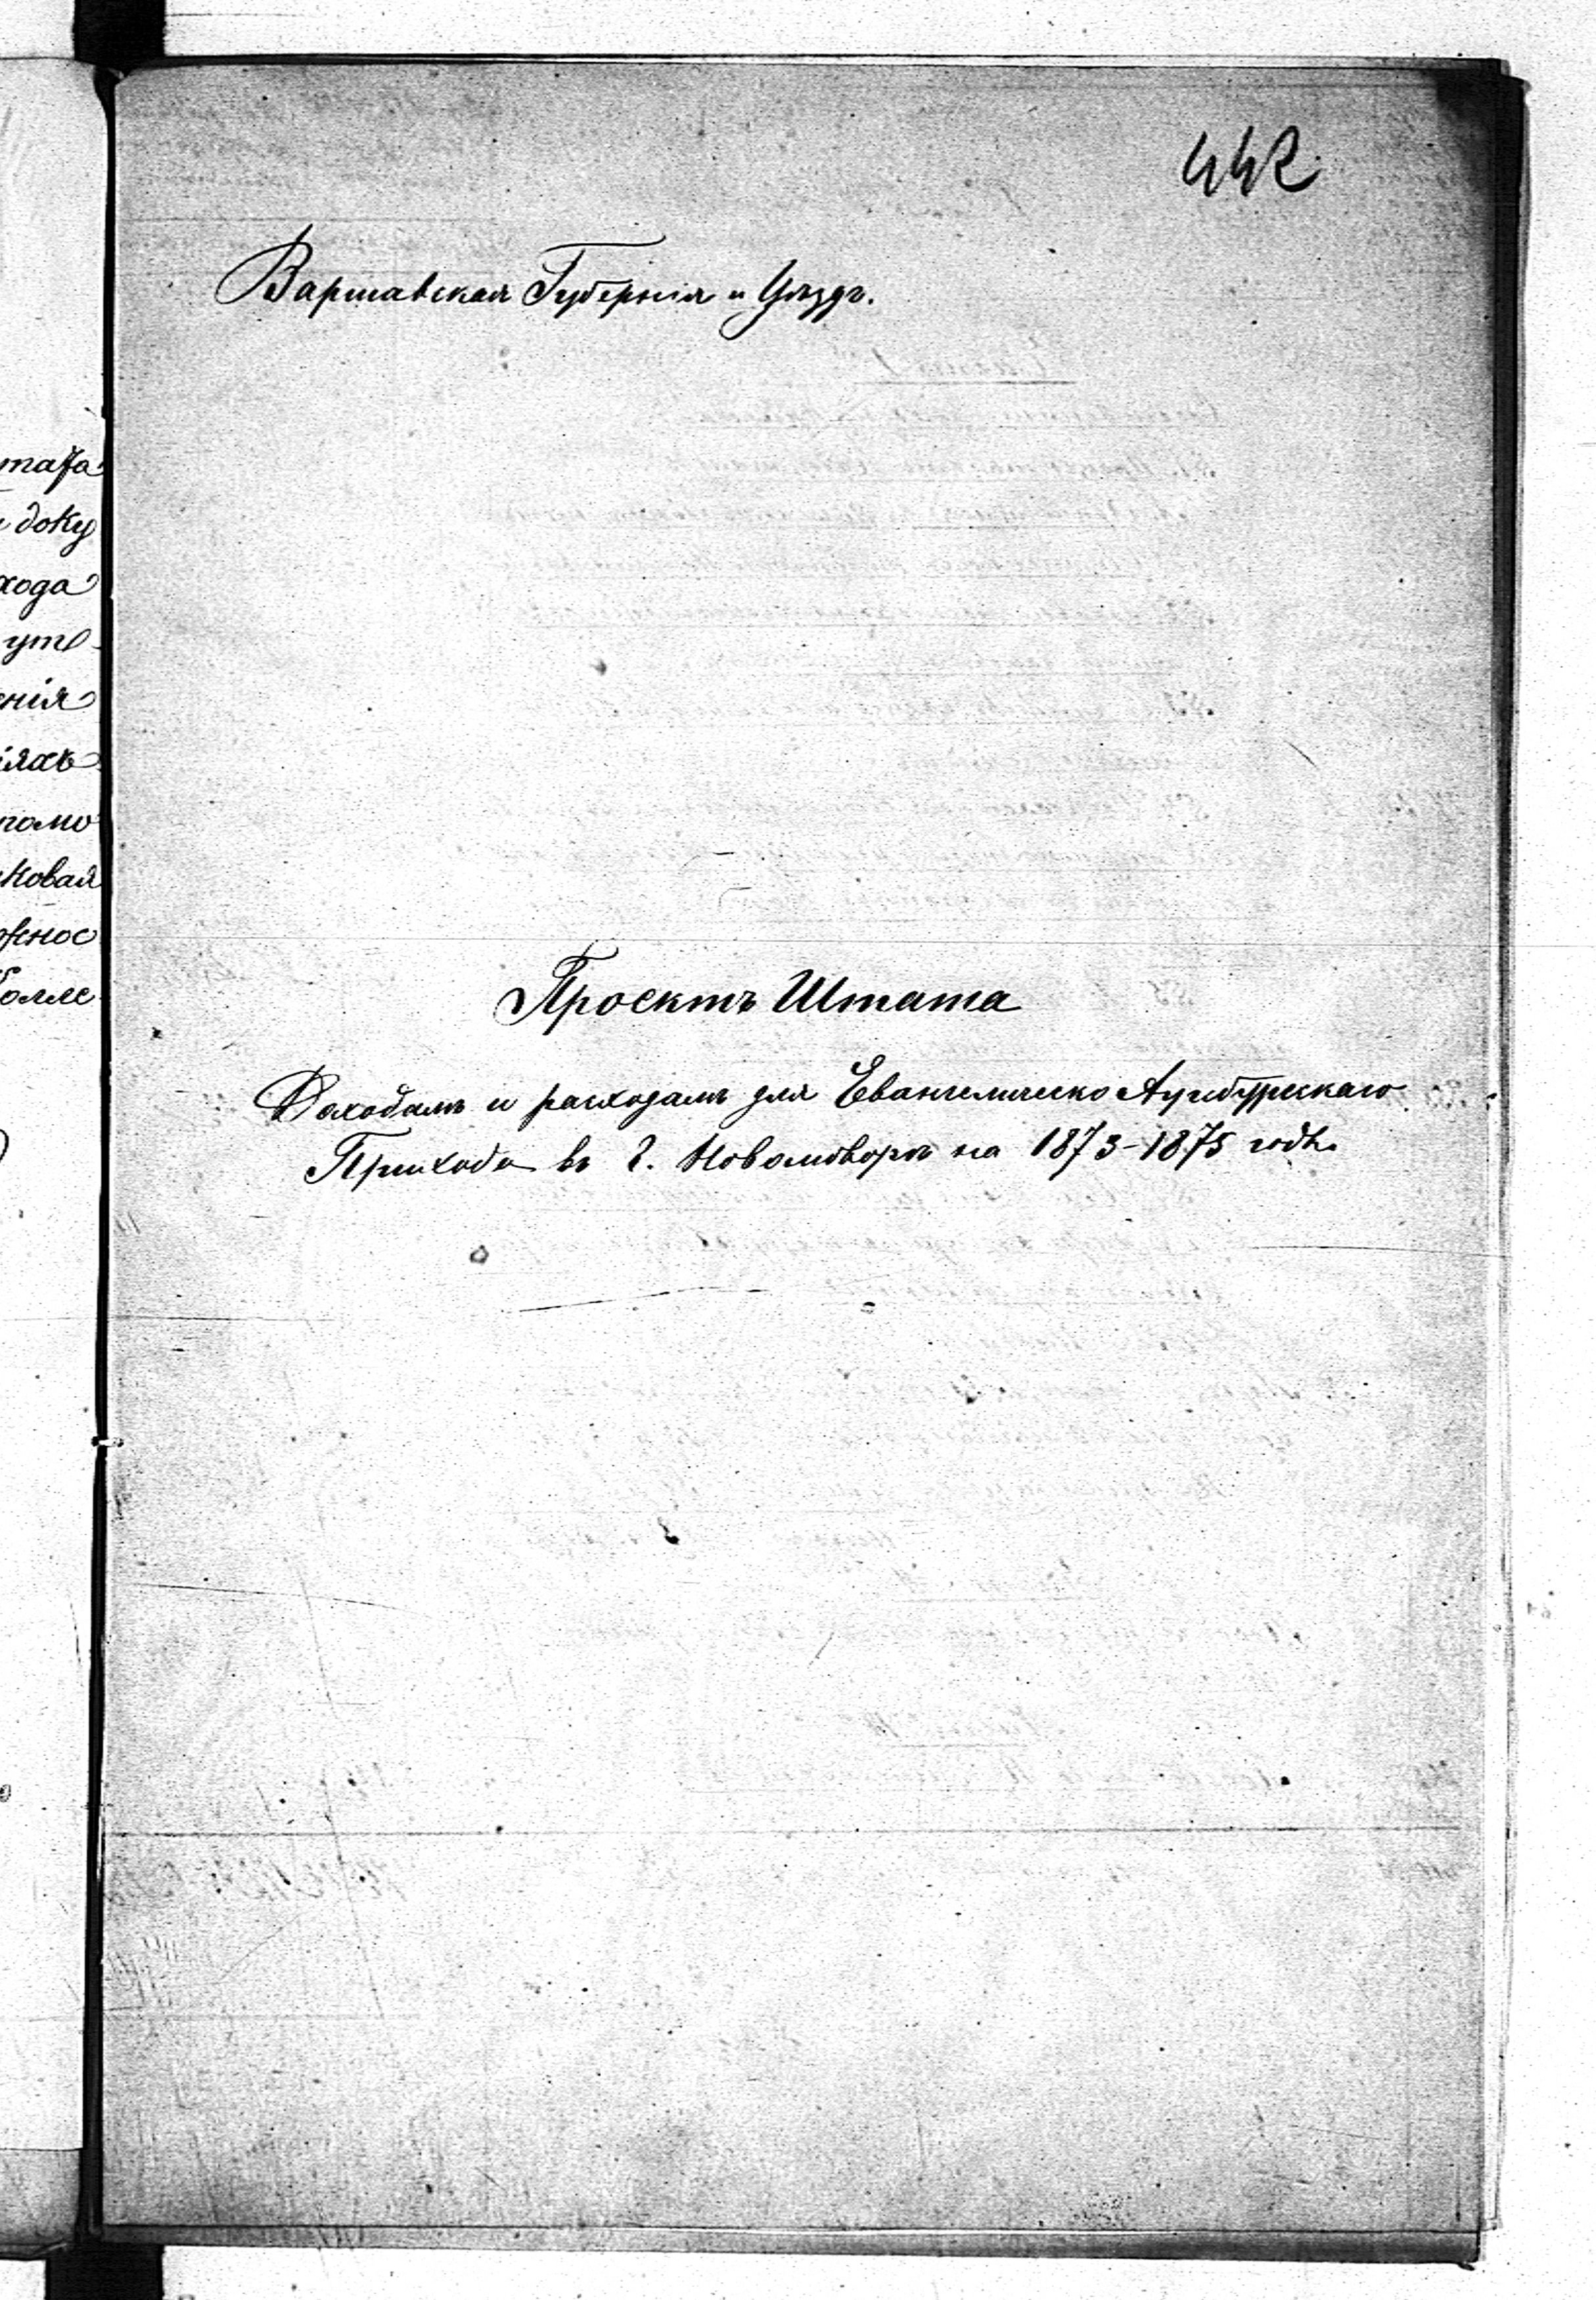 442
Варшавская Губернія и Уѣздъ.
Проектъ Штата
Доходамъ и расходамъ для Евангелическо Аугсбургскаго
Прихода въ г. Новомъдворѣ на 1873–1875 годъ.
та
доку
хода
утв
енія
іяхъ
помо
ковая